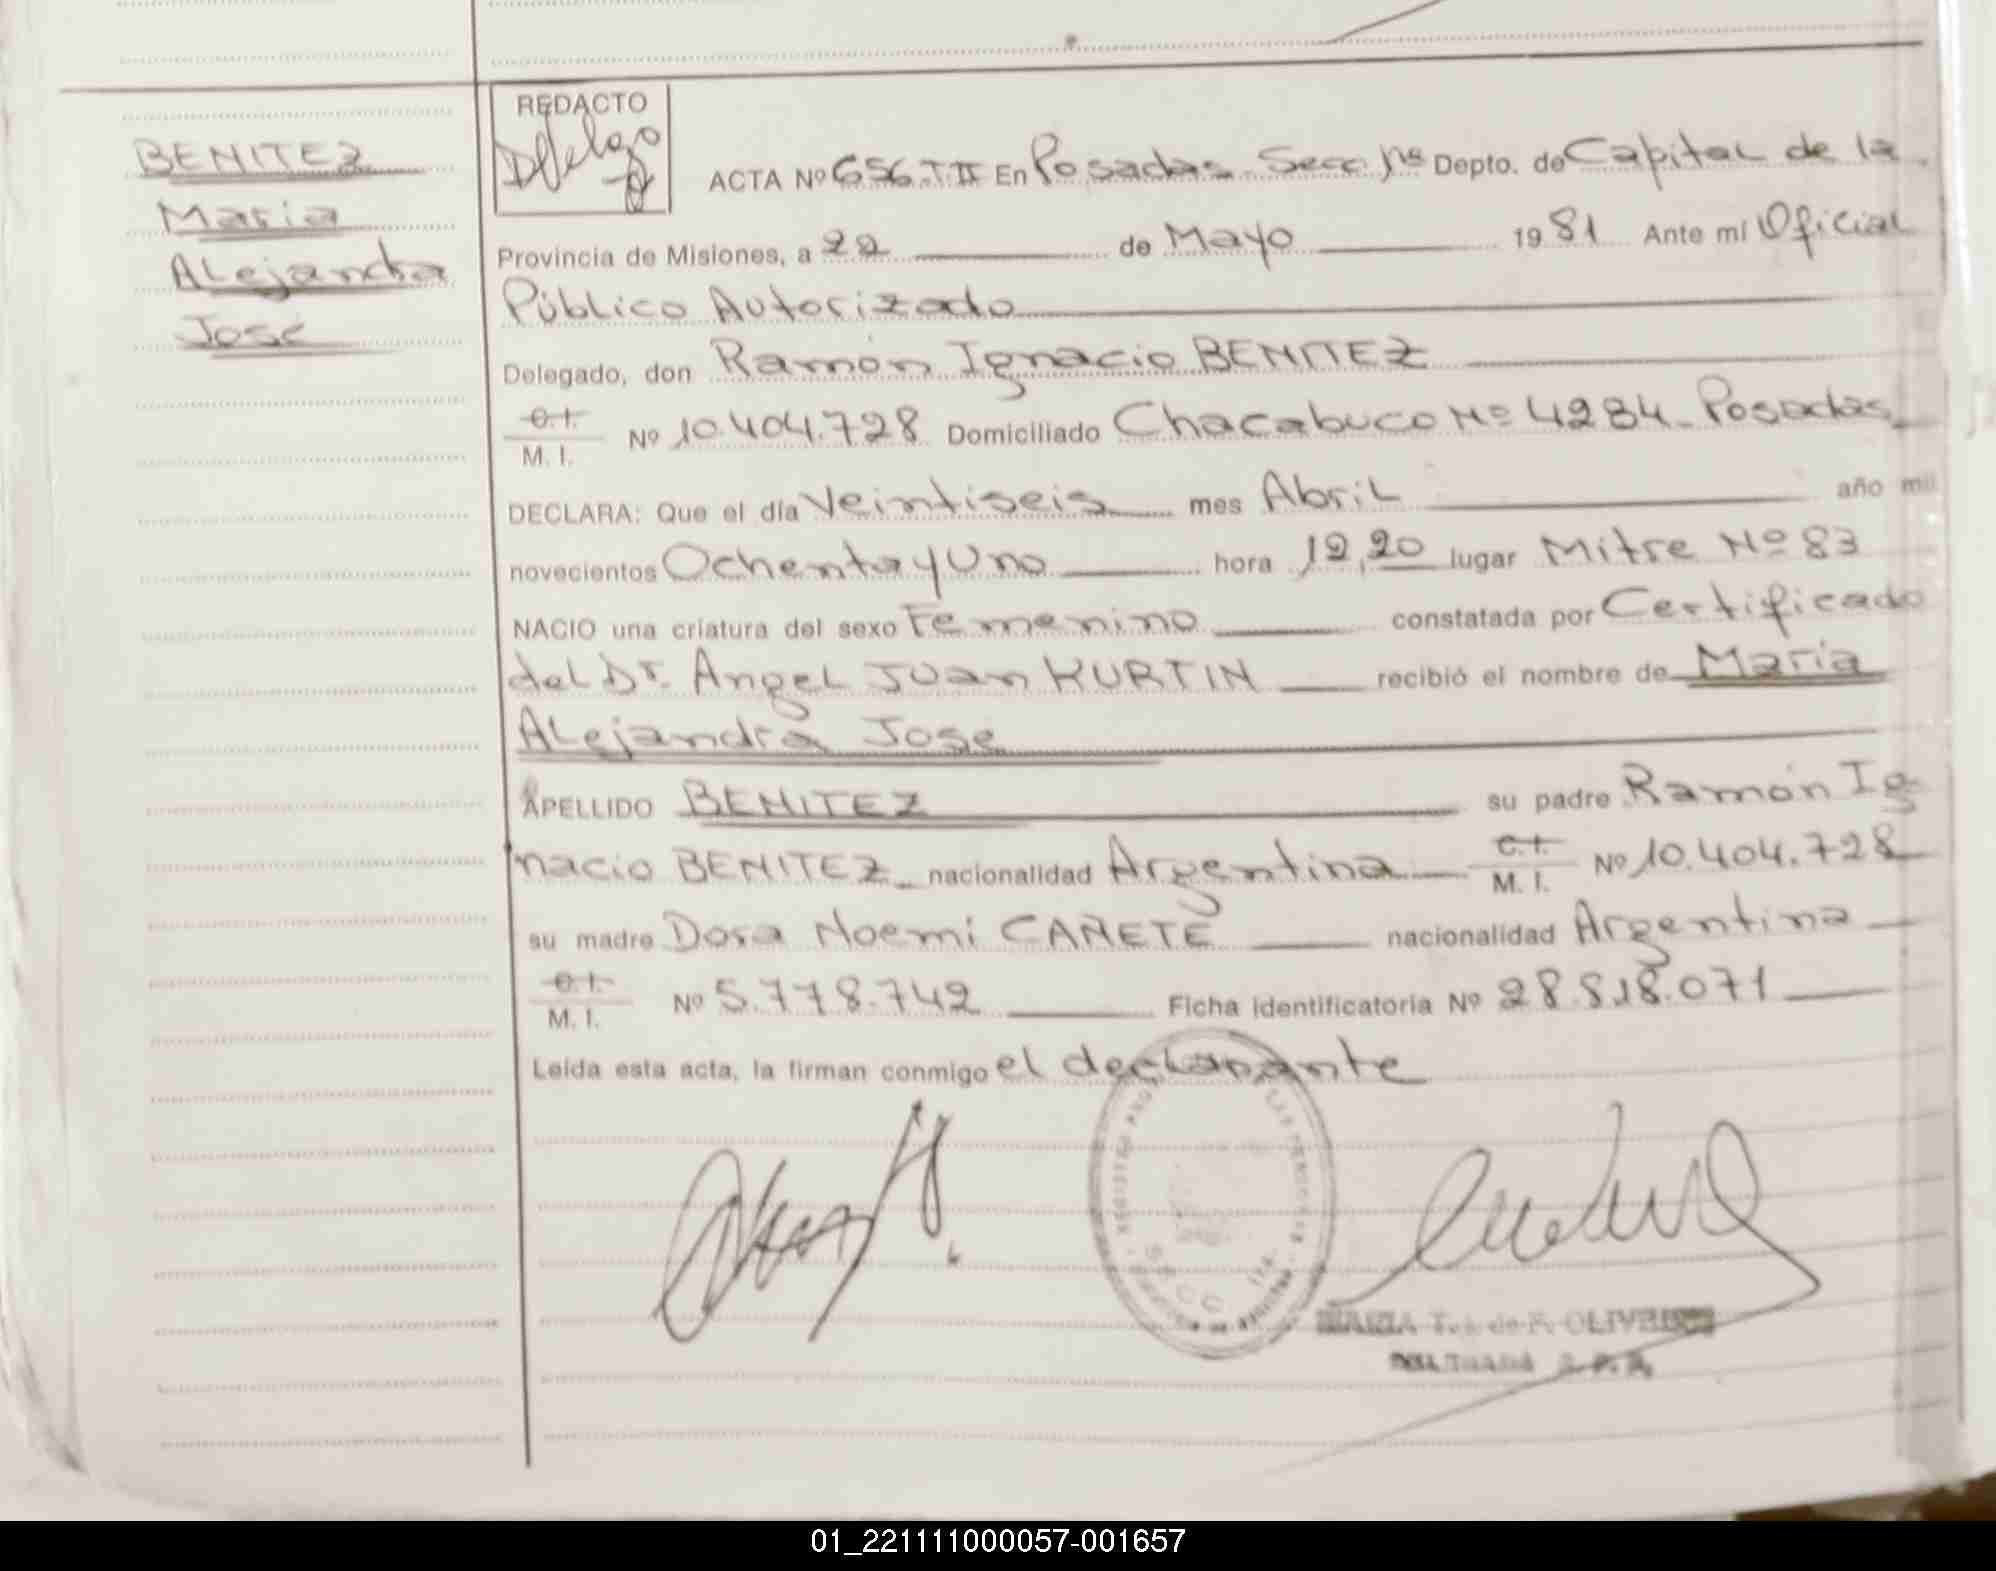 BENITEZ
Maria
Alejandra
José
REDACTO
ACTA Nº 656-T II En Posadas Secc 1ª Depto. de Capital de la
Provincia de Misiones, a 22 de Mayo 1981 Ante mi Oficial
Público Autorizado
Delegado, don Ramón Ignacio BENITEZ
C.I.
M. I. Nº 10.404.728 Domiciliado Chacabuco Nº 4284 - Posadas
DECLARA: Que el día Veintiseis mes Abril año mil
novecientos Ochenta y Uno hora 12,20 lugar Mitre Nº 83
NACIO una criatura del sexo Femenino constatada por Certificado
del Dr. Angel Juan KURTIN recibió el nombre de Maria
Alejandra José
APELLIDO BENITEZ su padre Ramón Ig
nacio BENITEZ nacionalidad Argentina C.I.
M. I. Nº 10.404.728
su madre Dora Noemi CAÑETE nacionalidad Argentina
C.I.
M. I. Nº 5.778.742 Ficha identificatoria Nº 28.818.071
Leída esta acta, la firman conmigo el declarante
MARIA T. de F. OLIVEIRA
01_221111000057-001657